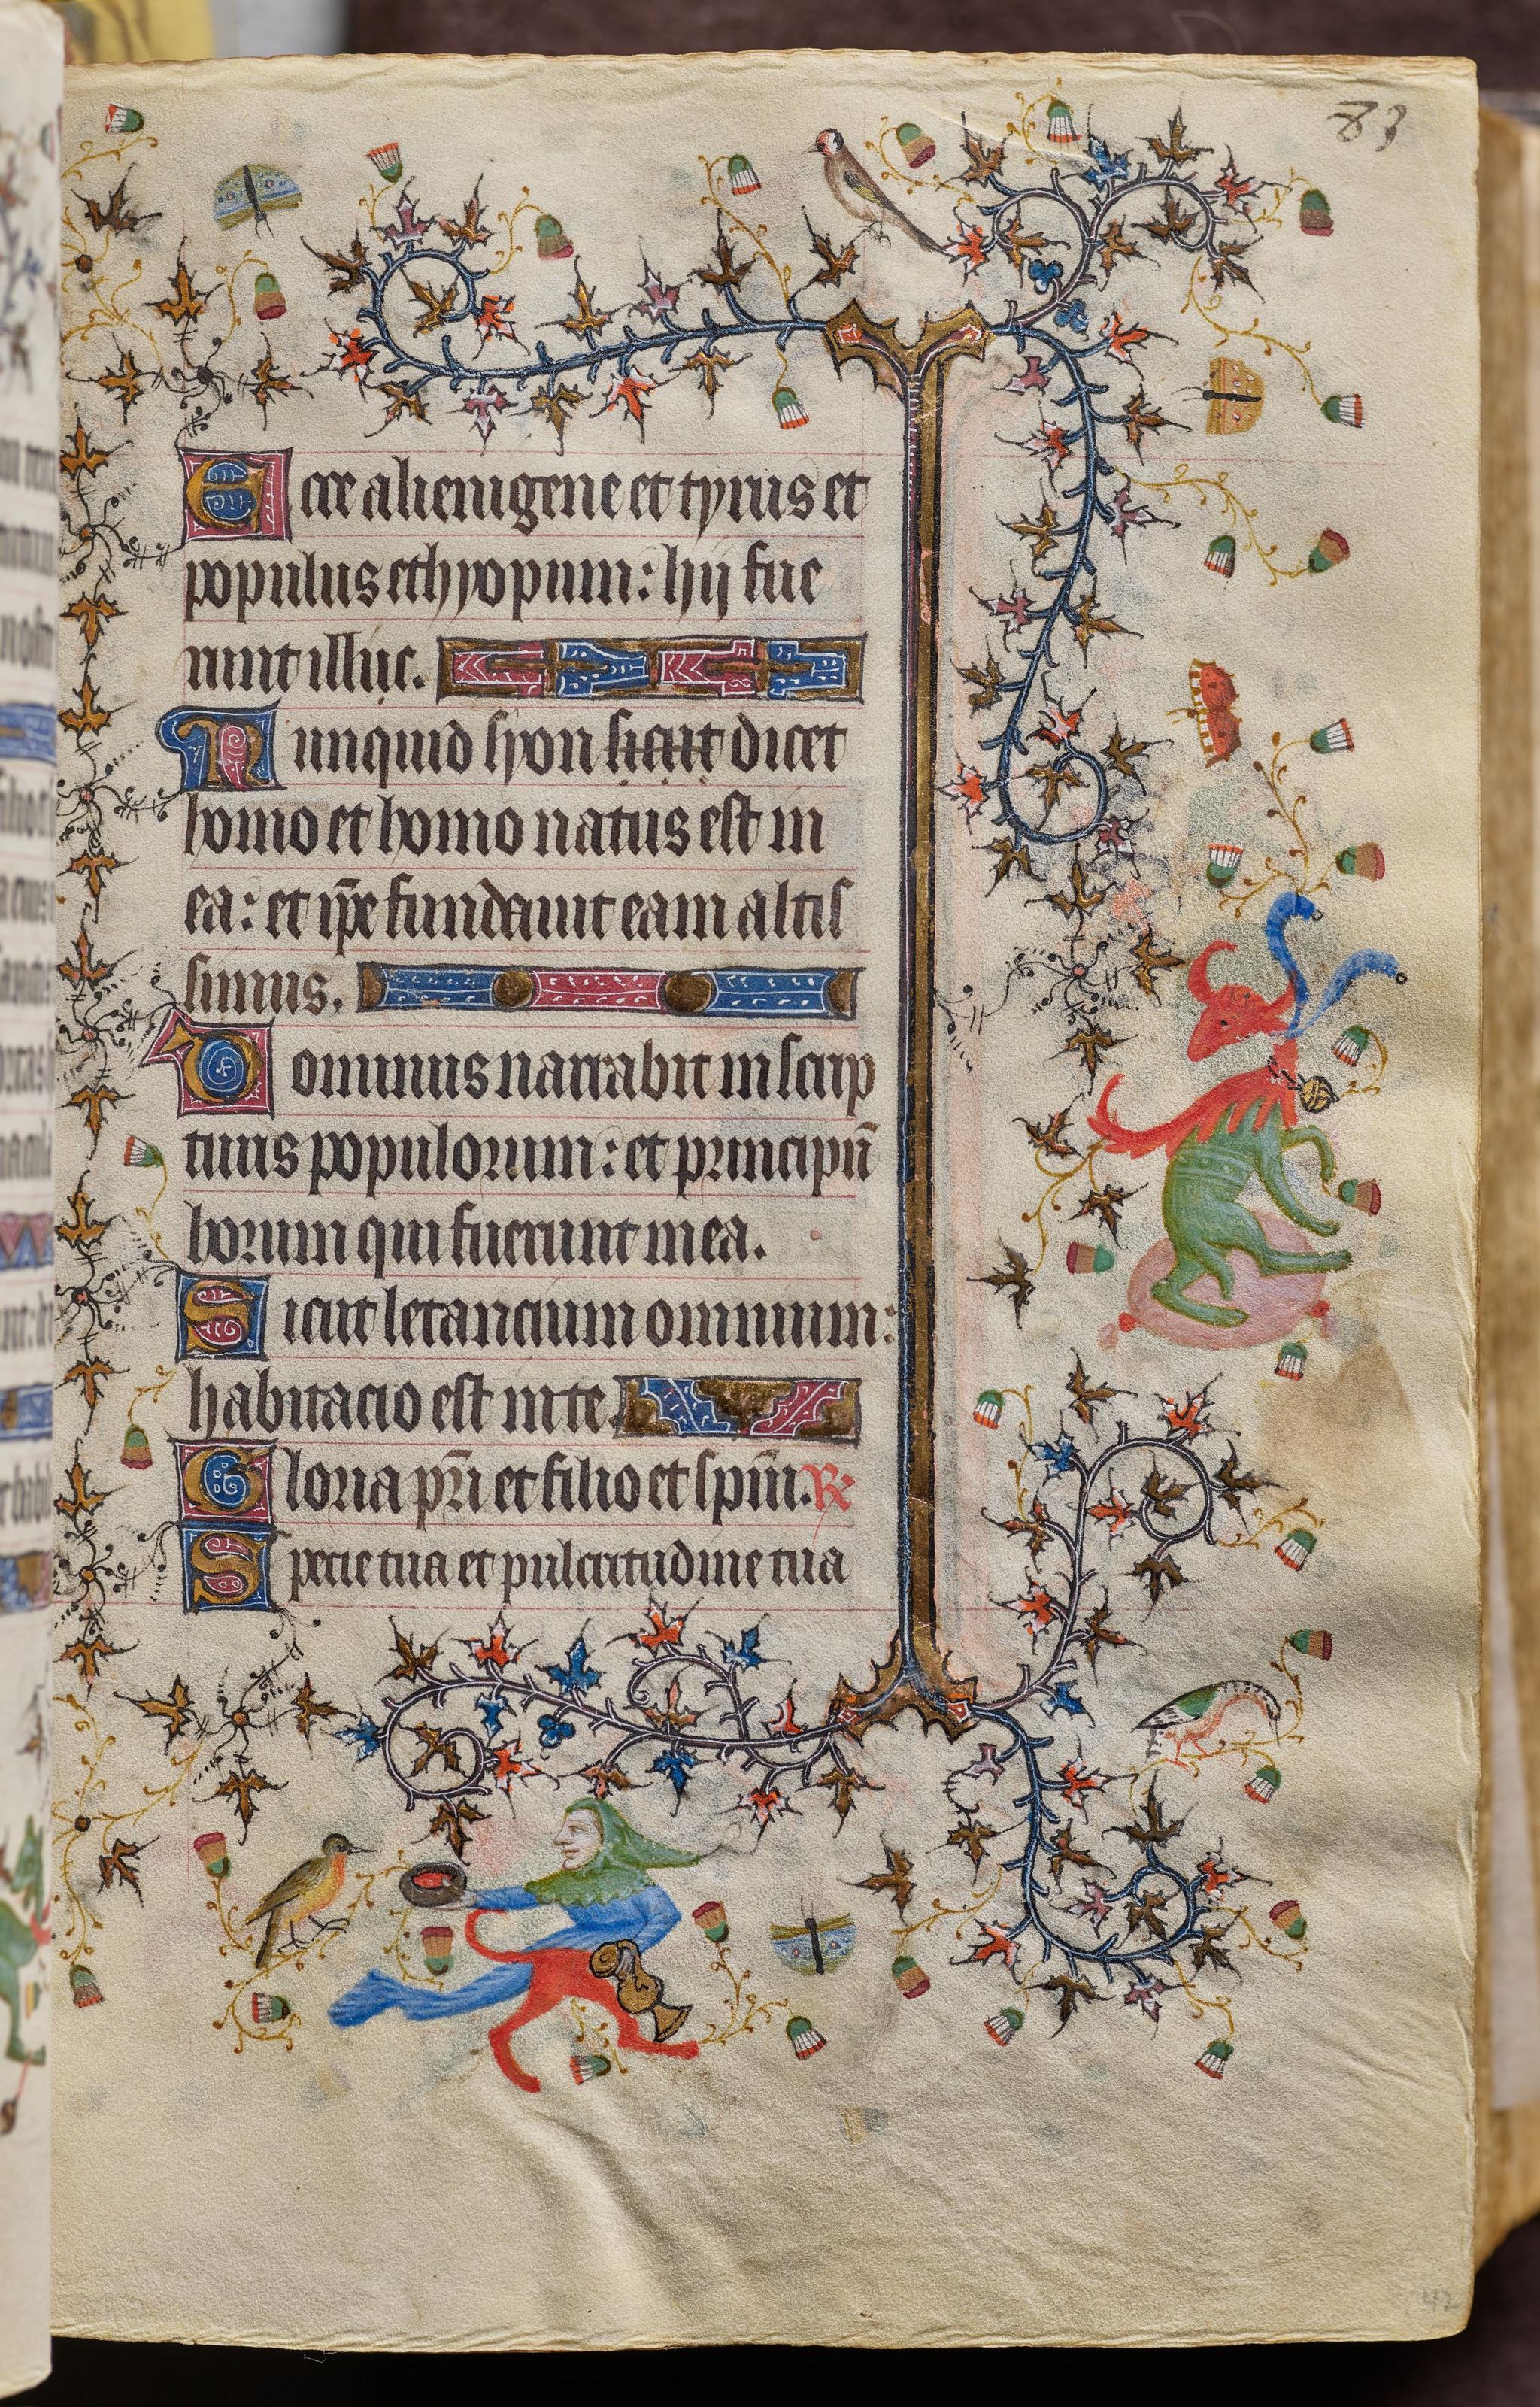 83
Ecce alienigene et tyrus et
populus ethyopum: hij fue
runt illuc.
Nunquid syon sicut dicet
homo et homo natus est in
ea: et ip̄e fundauit eam altis
simus.
Dominus narrabit in scrip
turis populorum: et principū
horum qui fuerunt in ea.
Sicut letancium omnium:
habitacio est in te.
Gloria pr̄i et filio et spiri̅.
Specie tua et pulcritudine tua
42